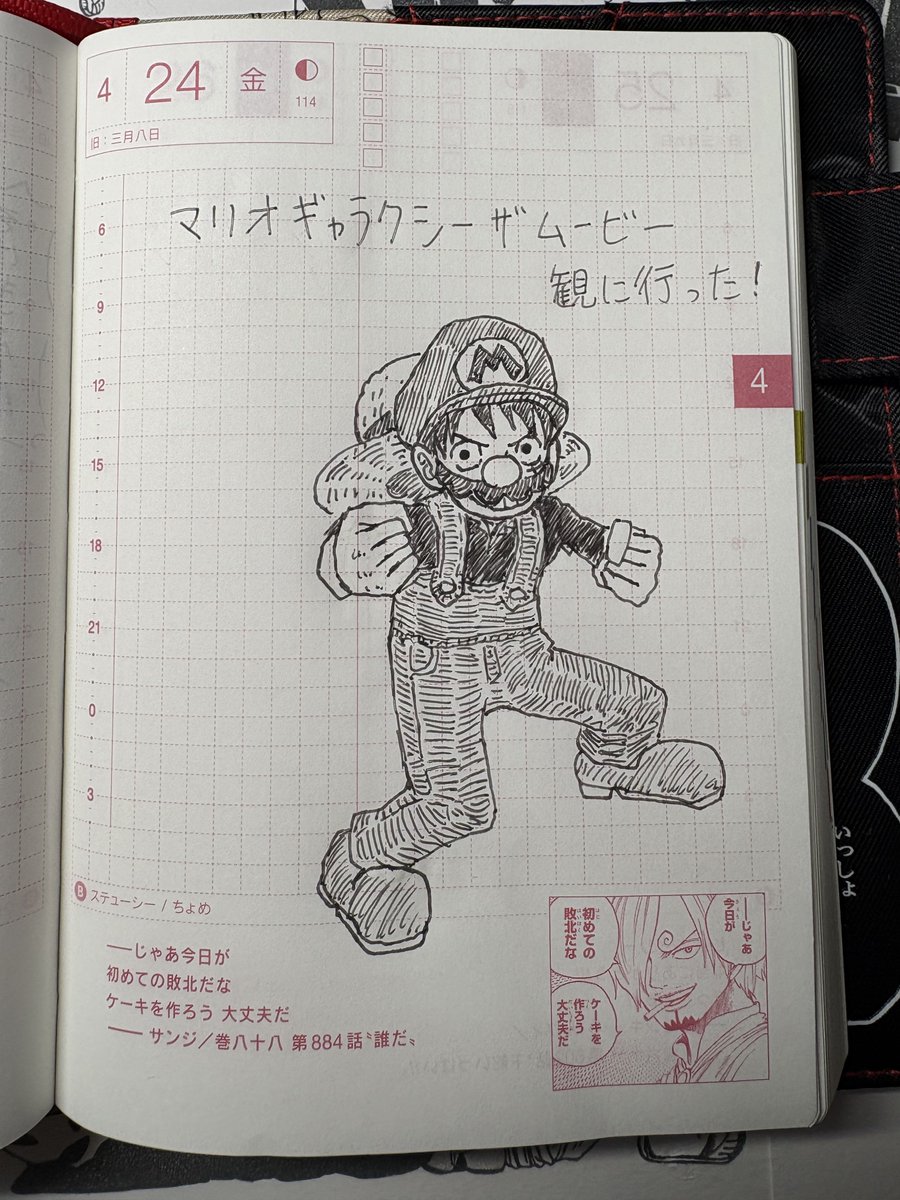 4 24 金
114
旧：三月八日
マリオギャラクシーザムービー
観に行った！
M
6
9
12
15
18
21
0
3
4
B ステューシー / ちょめ
──じゃあ今日が
初めての敗北だな
ケーキを作ろう 大丈夫だ
── サンジ／巻八十八 第884話〝誰だ〟
──じゃあ
今日が
初めての
敗北だな
ケーキを
作ろう
大丈夫だ
いっしょ